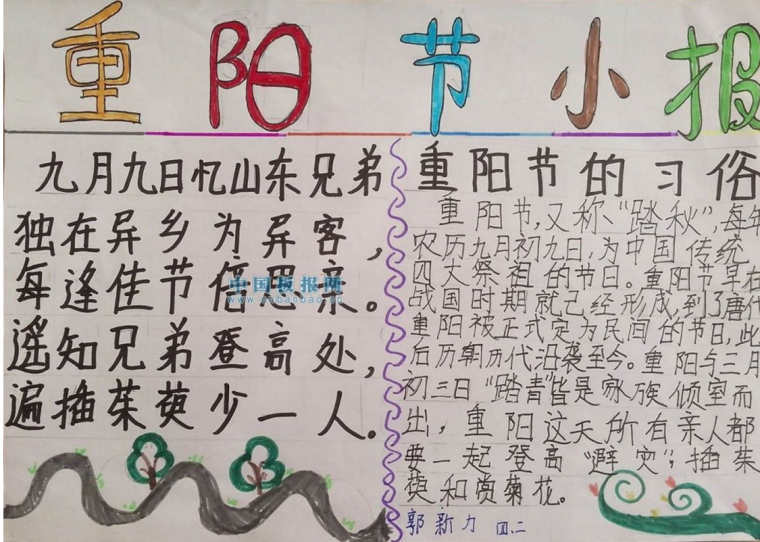 重阳节小报
九月九日忆山东兄弟
独在异乡为异客，
每逢佳节倍思亲。
遥知兄弟登高处，
遍插茱萸少一人。
重阳节的习俗
重阳节，又称、“踏秋”，每年
农历九月初九日，为中国传统
四大祭祖的节日。重阳节早在
战国时期就已经形成，到了唐代
重阳被正式定为民间的节日，此
后历朝历代沿袭至今。重阳与三月
初三日“踏青”皆是家族倾室而
出，重阳这天所有亲人都
要一起登高“避灾”，插茱
萸和赏菊花。
郭新力 四.二
中国板报网